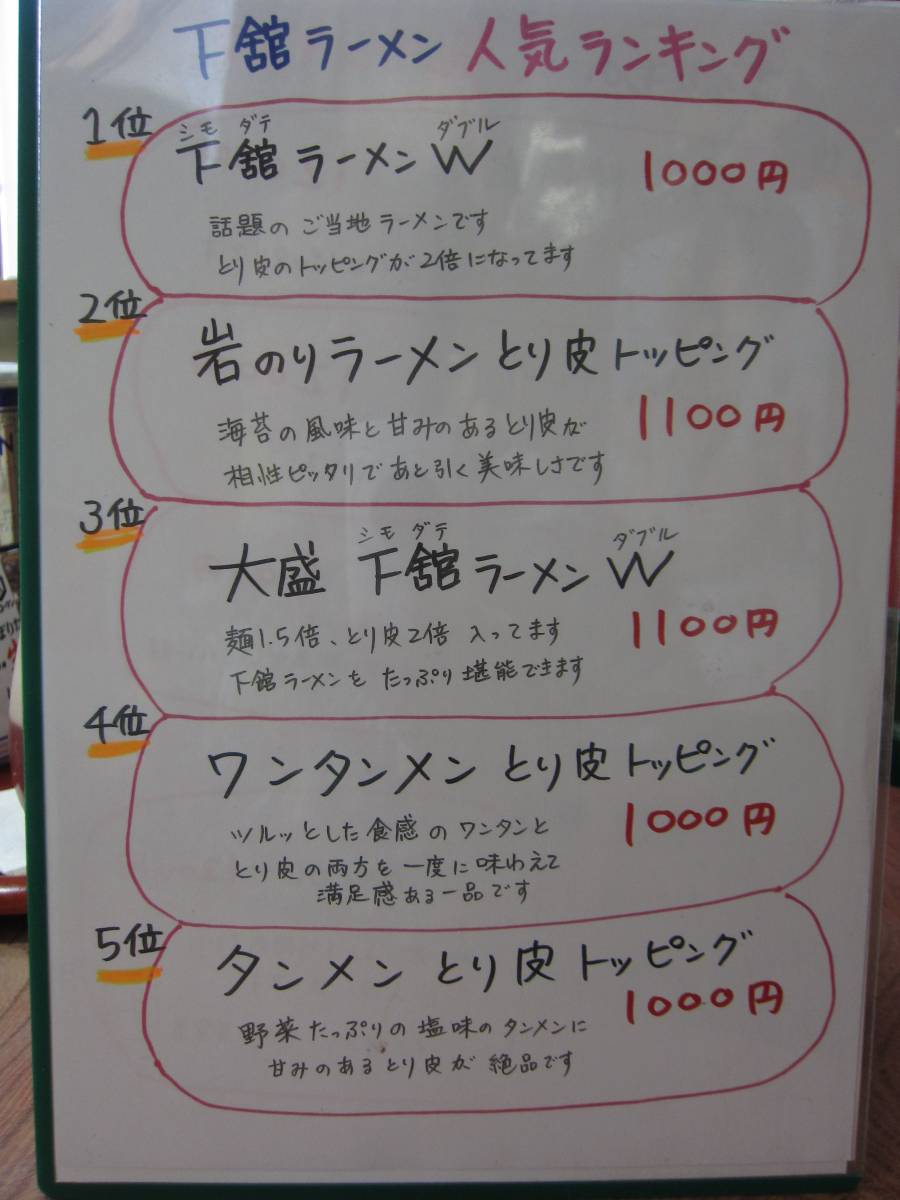 下舘ラーメン 人気ランキング
1位
シモ ダテ ダブル
下舘ラーメンW
1000円
話題のご当地ラーメンです
とり皮のトッピングが2倍になってます
2位
岩のりラーメン とり皮トッピング
1100円
海苔の風味と甘みのあるとり皮が
相性ピッタリであと引く美味しさです
3位
シモ ダテ ダブル
大盛 下舘ラーメンW
1100円
麺1.5倍、とり皮2倍 入ってます
下舘ラーメンを たっぷり堪能できます
4位
ワンタンメン とり皮トッピング
1000円
ツルッとした食感のワンタンと
とり皮の両方を一度に味わえて
満足感ある一品です
5位
タンメン とり皮トッピング
1000円
野菜たっぷりの塩味のタンメンに
甘みのあるとり皮が絶品です